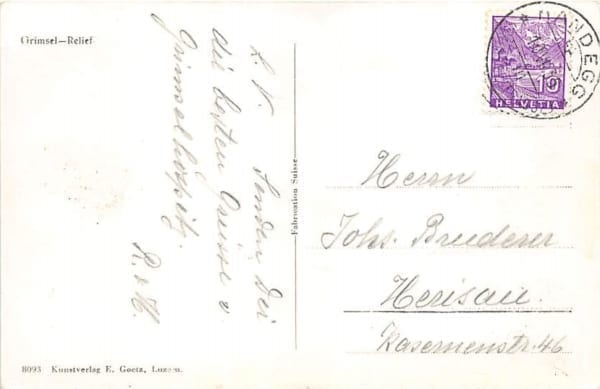 Grimsel—Relief
L. V. Senden Dir
die besten Grüsse v.
Grimselhospiz.
R. & H.
Fabrication Suisse
HANDEGG
10
HELVETIA
Herrn
Johs. Bruderer
Herisau.
Kasernenstr. 46
8093 Kunstverlag E. Goetz, Luzern.